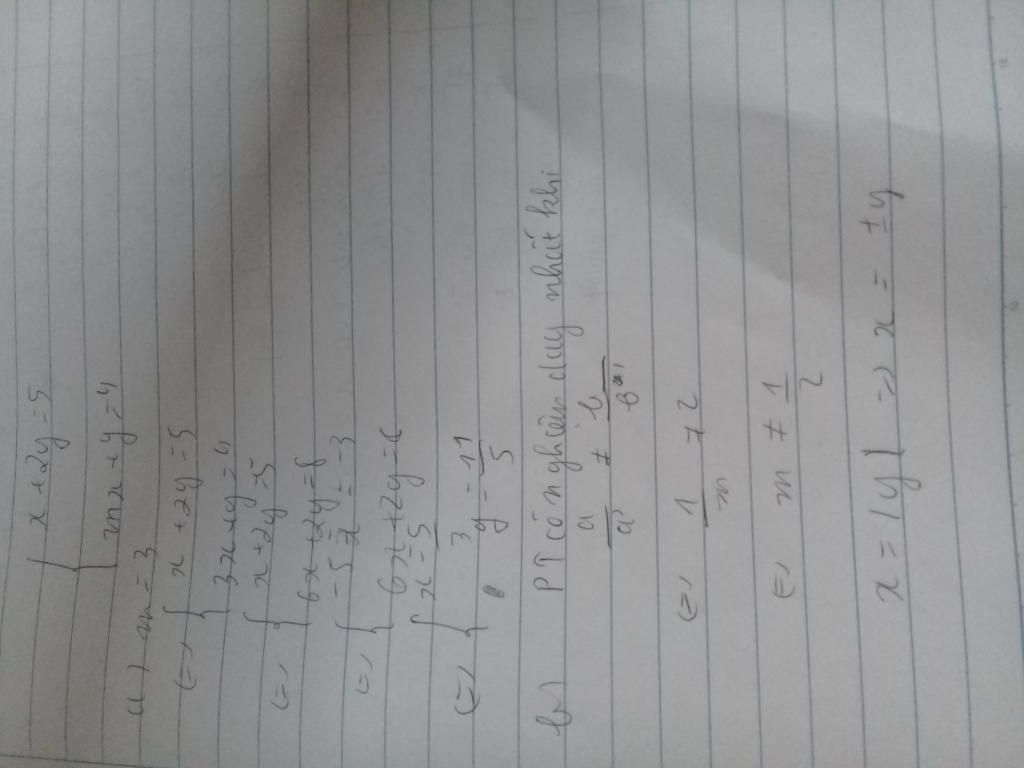 { x + 2y = 5
{ mx + y = 4
a) m = 3
(=) { x + 2y = 5
{ 3x + y = 4
(=) { x + 2y = 5
{ 6x + 2y = 8
(=) { -5x = -3
{ 6x + 2y = 8
(=) { x = 5/3
{ y = 11/5
b) PT có nghiệm duy nhất khi
a/a' ≠ b/b'
(=) 1/m ≠ 2
(=) m ≠ 1/2
x = |y| => x = ± y